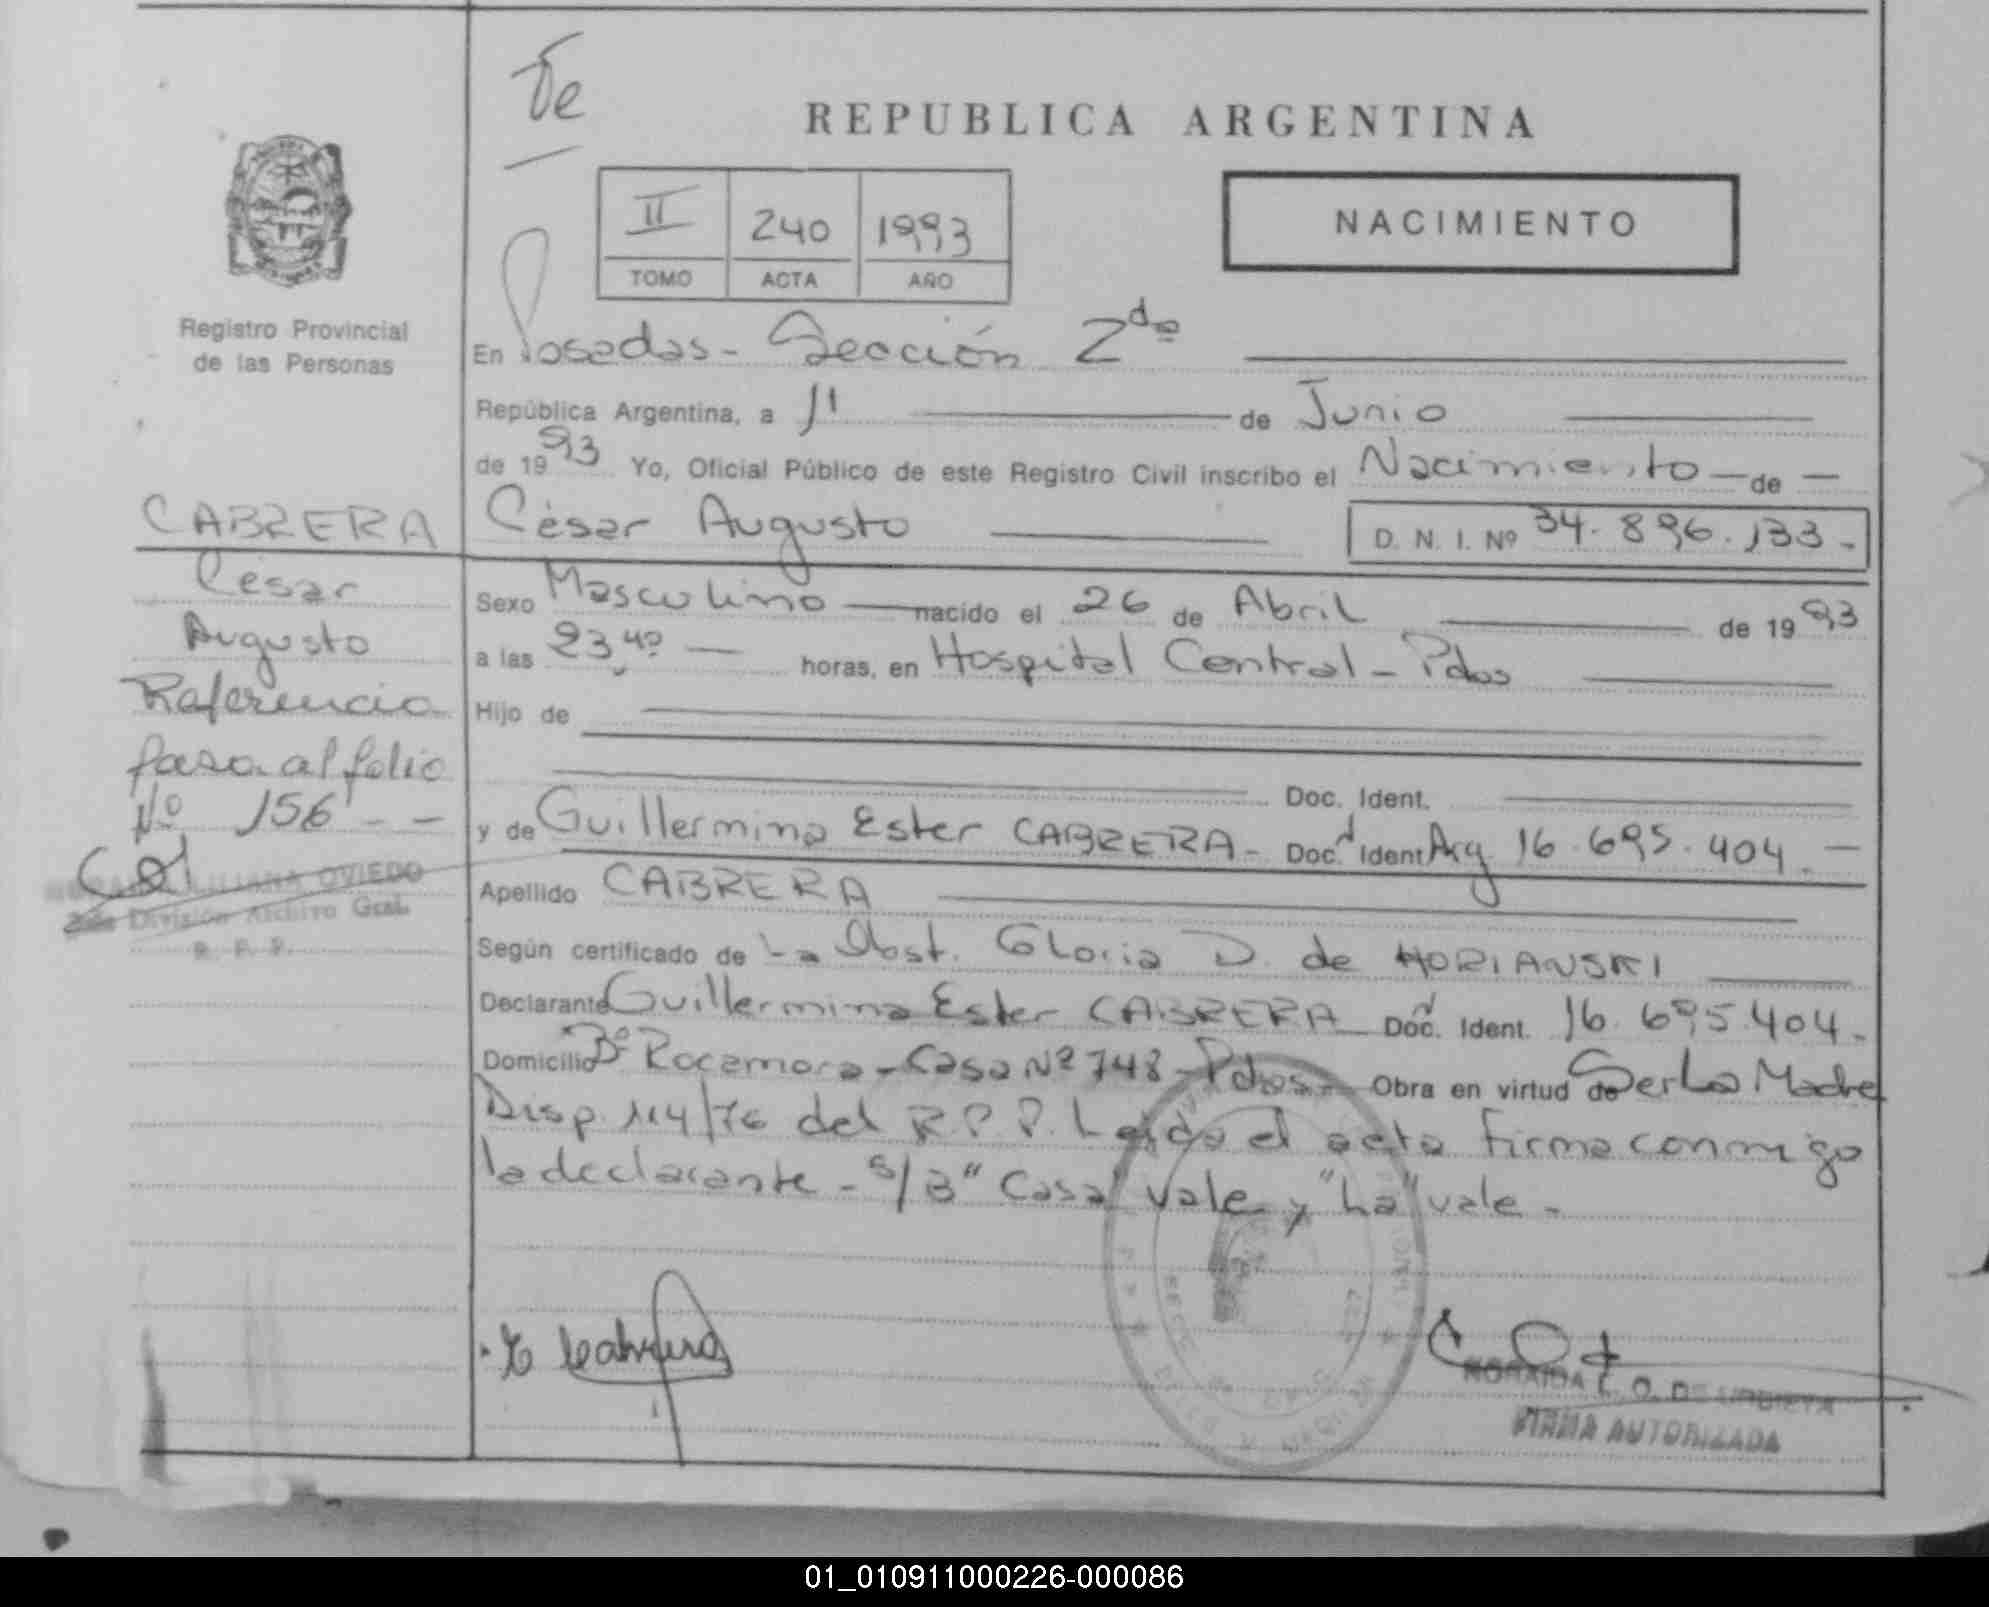 De
REPUBLICA ARGENTINA
II 240 1993
TOMO ACTA AÑO
NACIMIENTO
Registro Provincial
de las Personas
En Posadas - Sección 2da
República Argentina, a 11 de Junio
de 1993 Yo, Oficial Público de este Registro Civil inscribo el Nacimiento - de -
César Augusto D. N. I. Nº 34.896.133.-
Sexo Masculino nacido el 26 de Abril de 1993
a las 23 40 - horas, en Hospital Central - Pdas
Hijo de
Doc. Ident.
y de Guillermina Ester CABRERA - Doc. Ident Arg 16.695.404.-
Apellido CABRERA
Según certificado de La Obst. Gloria D. de HORIANSKI
Declarante Guillermina Ester CABRERA Doc. Ident. 16.695.404.-
Domicilio Bº Rocamora - Casa Nº 748 - Pdas - Obra en virtud de Ser La Madre
Disp. 114/76 del R.P.P. Leída el acta firma conmigo
la declarante - s/B "Casa" vale y "La" vale -
CABRERA
César
Augusto
Referencia
pasa al folio
Nº 156 - -
LILIANA OVIEDO
División Archivo Gral.
R. P. P.
E Cabrera
FIRMA AUTORIZADA
01_010911000226-000086